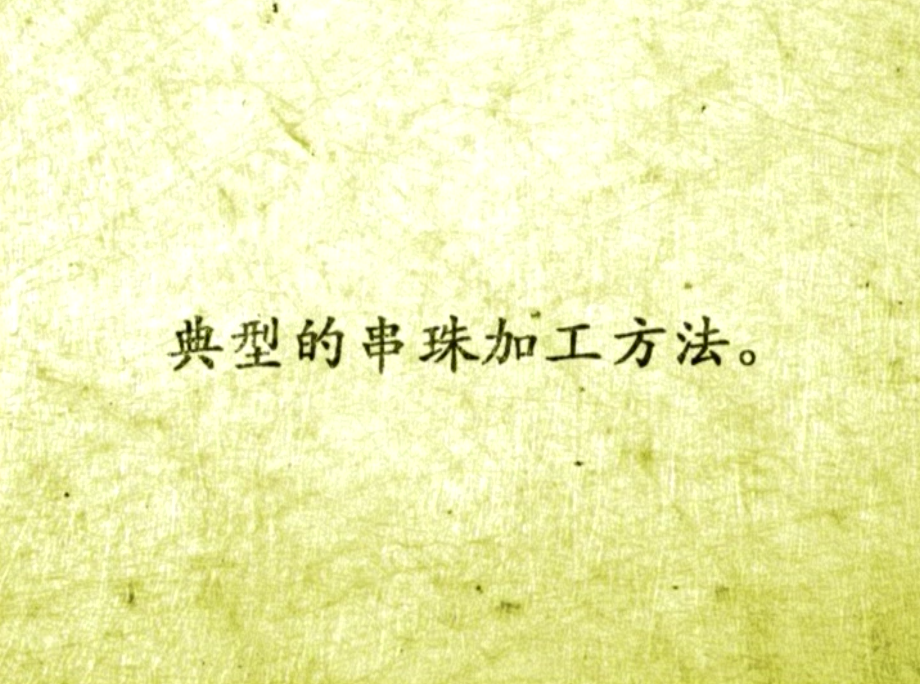 典型的串珠加工方法。